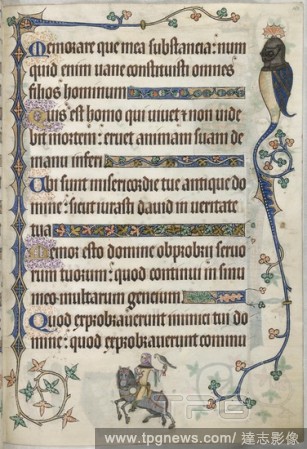 Memorare que mea substancia: num
quid enim uane constituisti omnes
filios hominum
Quis est homo qui uiuet ⁊ non uide
bit mortem: eruet animam suam de
manu inferi
Ubi sunt misericordie tue antique do
mine: sicut iurasti dauid in ueritate
tua
Memor esto domine obprobrii seruo
rum tuorum: quod continui in sinu
meo multarum gencium
Quod exprobrauerunt inimici tui do
mine: quod exprobrauerunt commu
TPG
www.tpgnews.com/ 達志影像